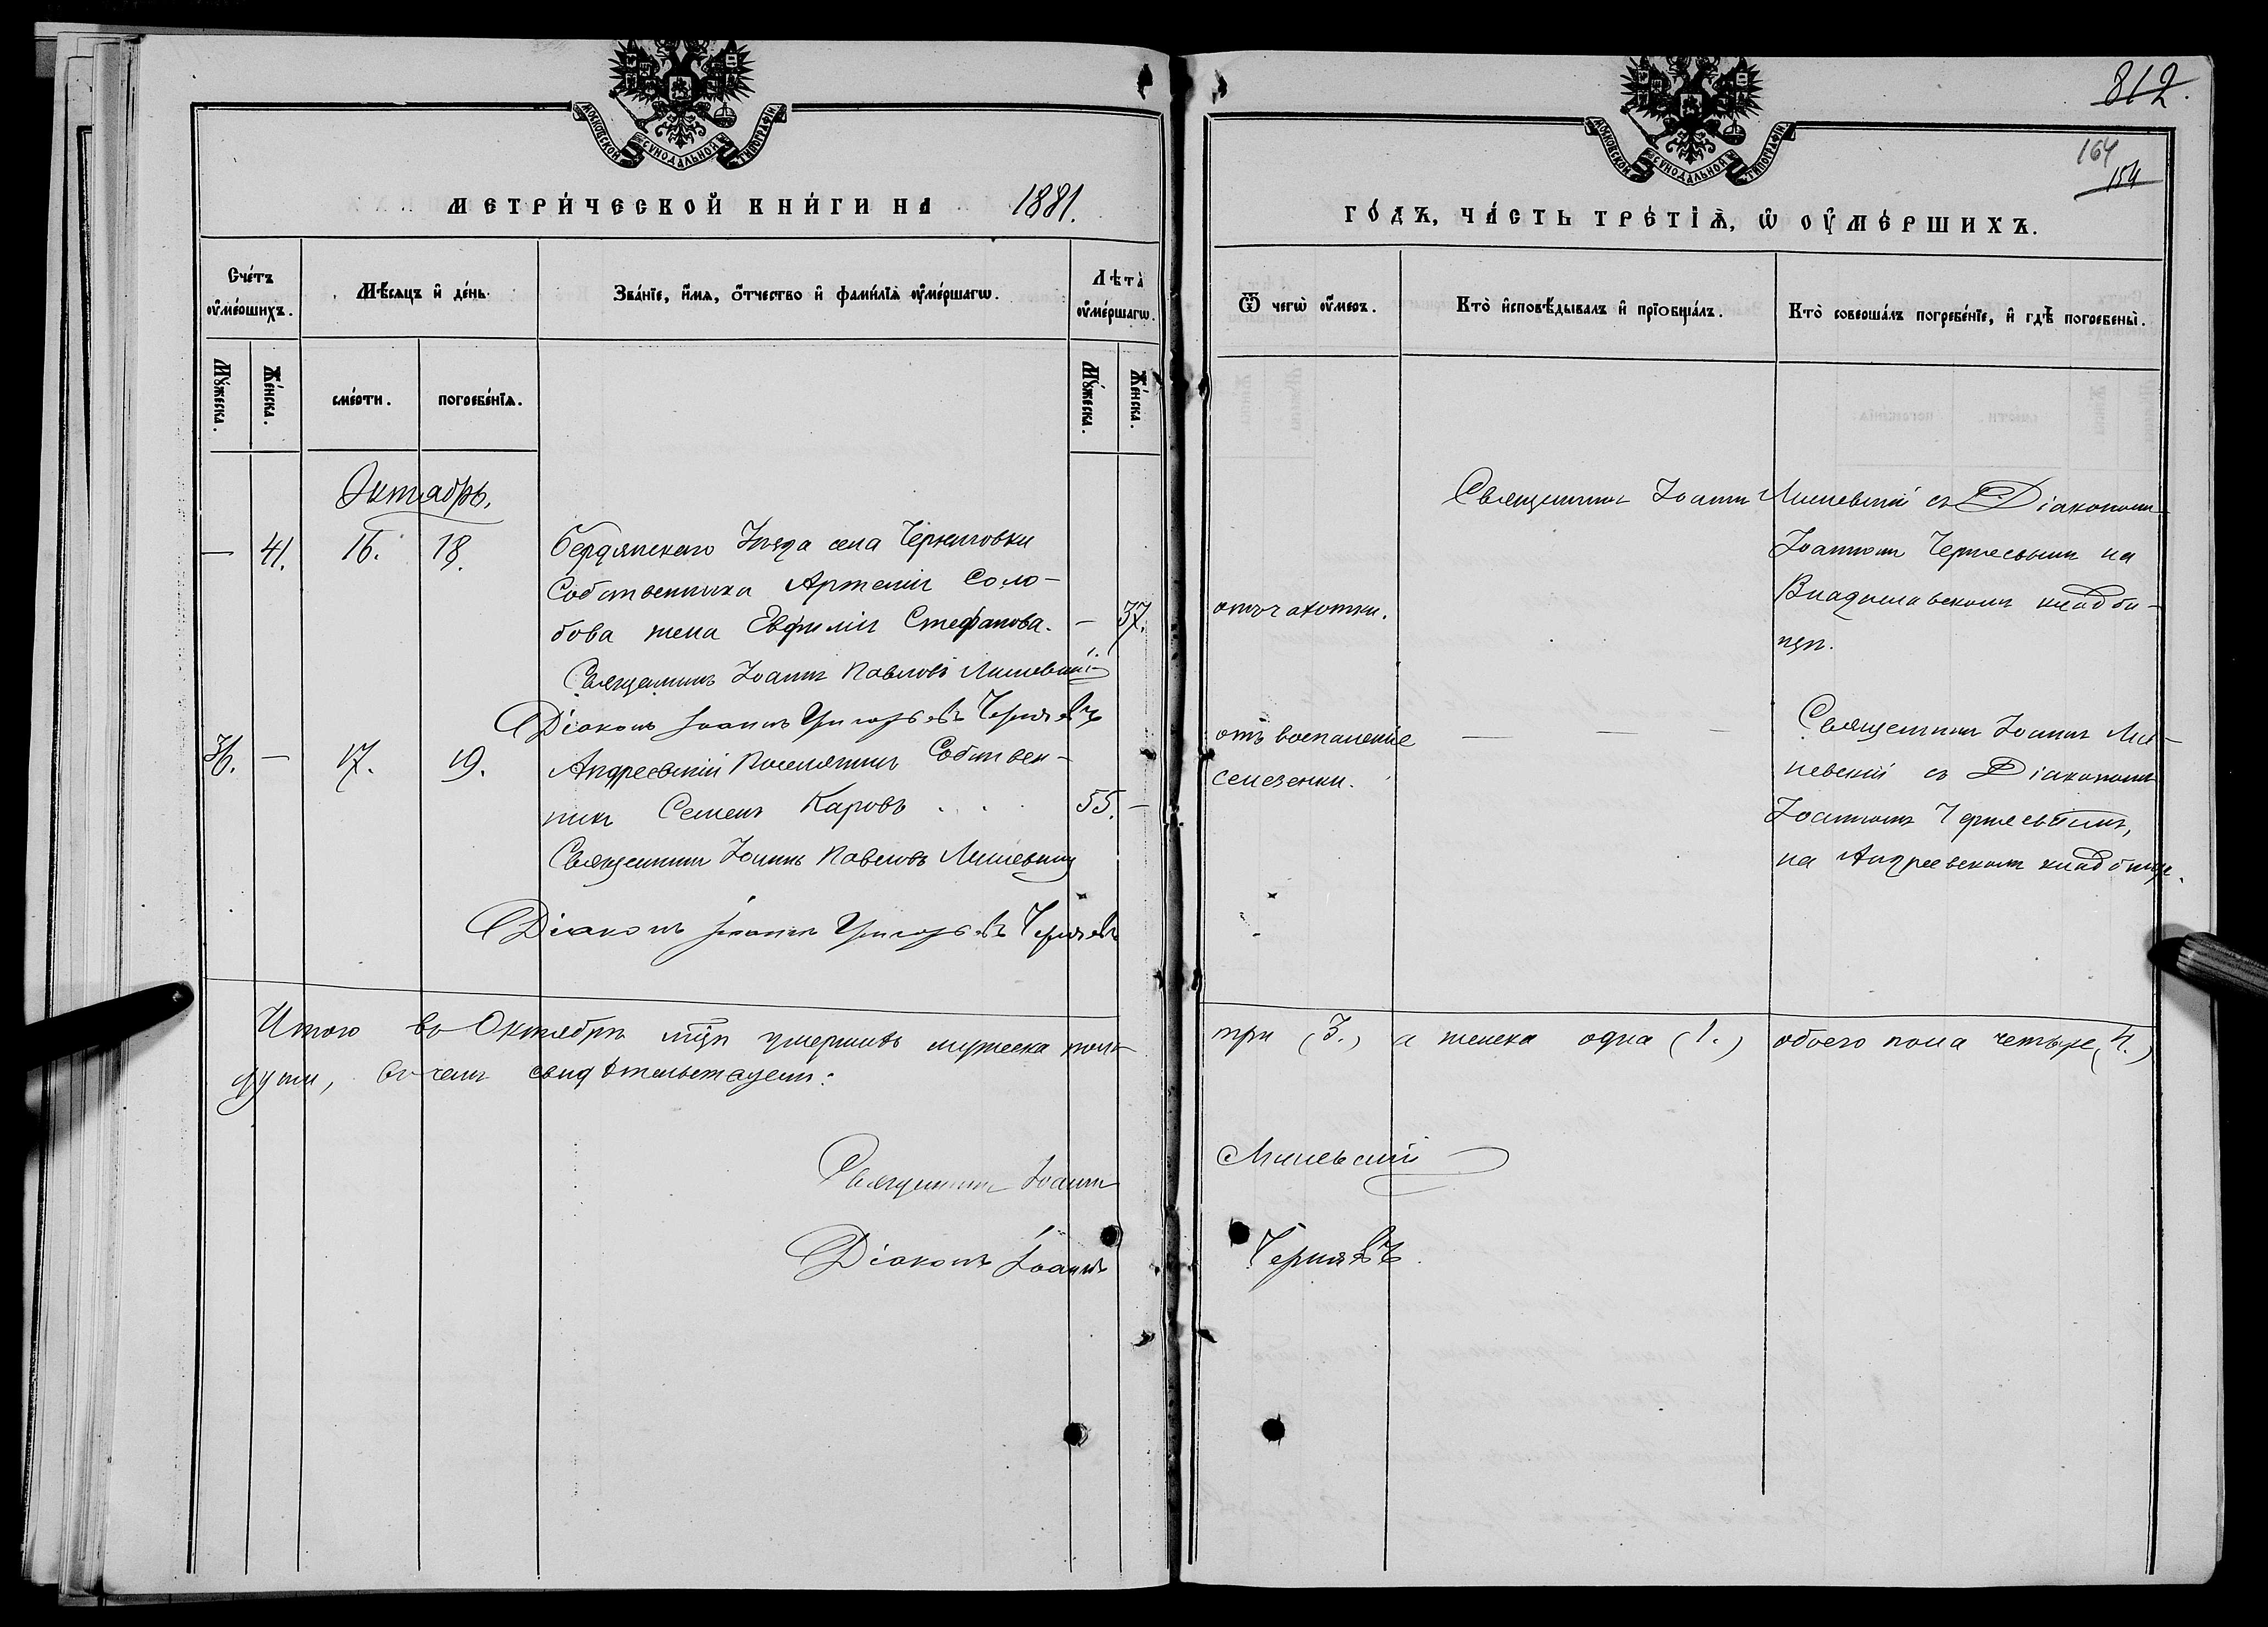 МОСКОВСКОЙ СУНОДАЛЬНОЙ ТИПОГРАФІИ
МЕТРИ́ЧЕСКОЙ КНИ́ГИ НА 1881.
Сче́тъ ᲂу҆ме́ршихъ.
Мѣ́сяцъ и҆ де́нь
Зва́нїе, и҆́мѧ, ѻ҆́тчество и҆ фами́лїѧ ᲂу҆ме́ршагѡ.
Лѣта̀ ᲂу҆ме́ршагѡ.
Мꙋ́жеска.
Же́нска.
сме́рти.
погребе́нїѧ.
Мꙋ́жеска.
Же́нска.
Октябрь.
— 41. 16. 18. Бердянскаго Уѣзда села Черниговки
Собственника Артемія Соло-
бова жена Евфимія Стефанова. — 37.
Священникъ Іоаннъ Павловъ
Діаконъ Іоаннъ Григорьевъ Черняевъ
36. — 17. 19. Андреевскій Поселянинъ Собствен-
никъ Семенъ Каровъ . . . 55. —
Священникъ Іоаннъ Павловъ
Діаконъ Іоаннъ Григорьевъ Черняевъ
Итого въ Октябрѣ мцѣ умершихъ мужеска пола
души, въ чемъ свидѣтельствуемъ:
Священникъ Іоаннъ
Діаконъ Іоаннъ
812.
164
154
МОСКОВСКОЙ СУНОДАЛЬНОЙ ТИПОГРАФІИ
ГО́ДЪ, ЧА́СТЬ ТРЕ́ТІѦ, Ѡ ОУ҆МЕ́РШИХЪ.
Ѿ чегѡ̀ ᲂу҆́меръ.
Кто̀ и҆сповѣ́дывалъ и҆ прїѻбща́лъ.
Кто̀ соверша́лъ погребе́нїе, и҆ гдѣ̀ погребены̀.
Священникъ Іоаннъ съ Діакономъ
Іоанномъ Черняевымъ на
кладби-
щѣ.
отъ чахотки.
отъ воспаленіе
селезенки.
— — —
Священникъ Іоаннъ
съ Діакономъ
Іоанномъ Черняевымъ,
на Андреевскомъ кладбищѣ.
три (3.) а женска одна (1.) обоего пола четыре (4.)
Черняевъ.